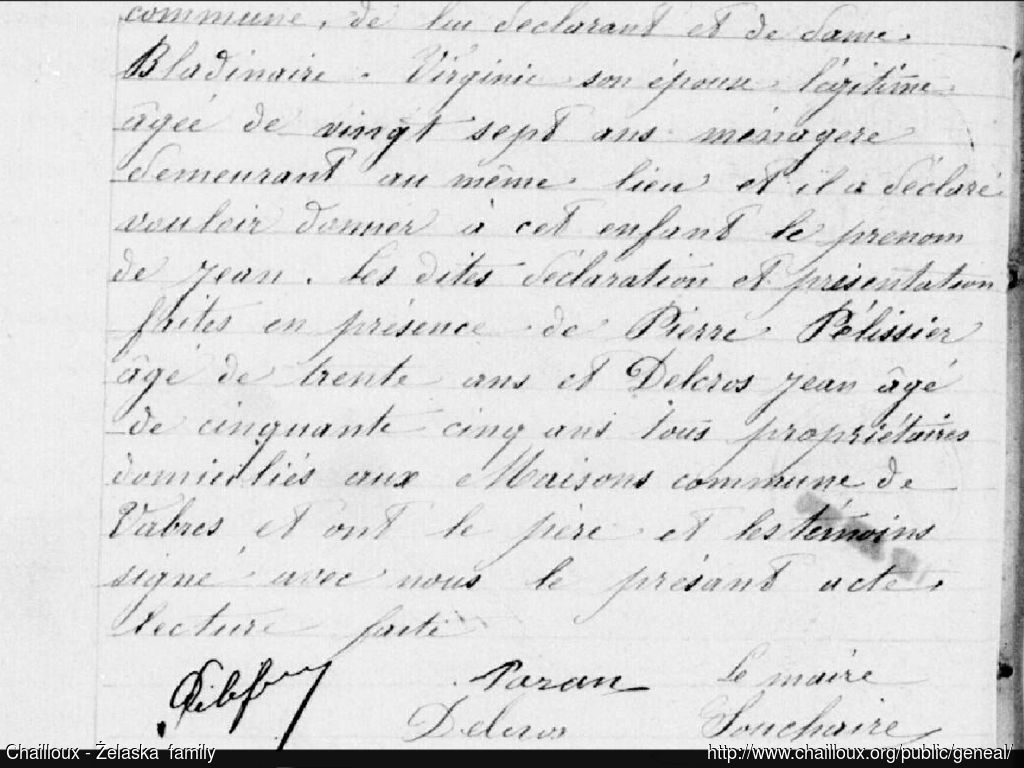 commune, de lui declarant et de dame
Bladinaire Virginie son épouse légitime
âgée de vingt sept ans ménagere
demeurant au même lieu et il a déclaré
vouloir donner à cet enfant le prenom
de jean. Les dites déclaration et présentation
faites en présence de Pierre Pélissier
âgé de trente ans et Delcros jean âgé
de cinquante cinq ans tous propriétaires
domiciliés aux Maisons commune de
Vabres et ont le père et les témoins
signé avec nous le présant acte
lecture faite
Pazan Le maire
Delcros Souchaire
Chailloux - Żelaska family http://www.chailloux.org/public/geneal/